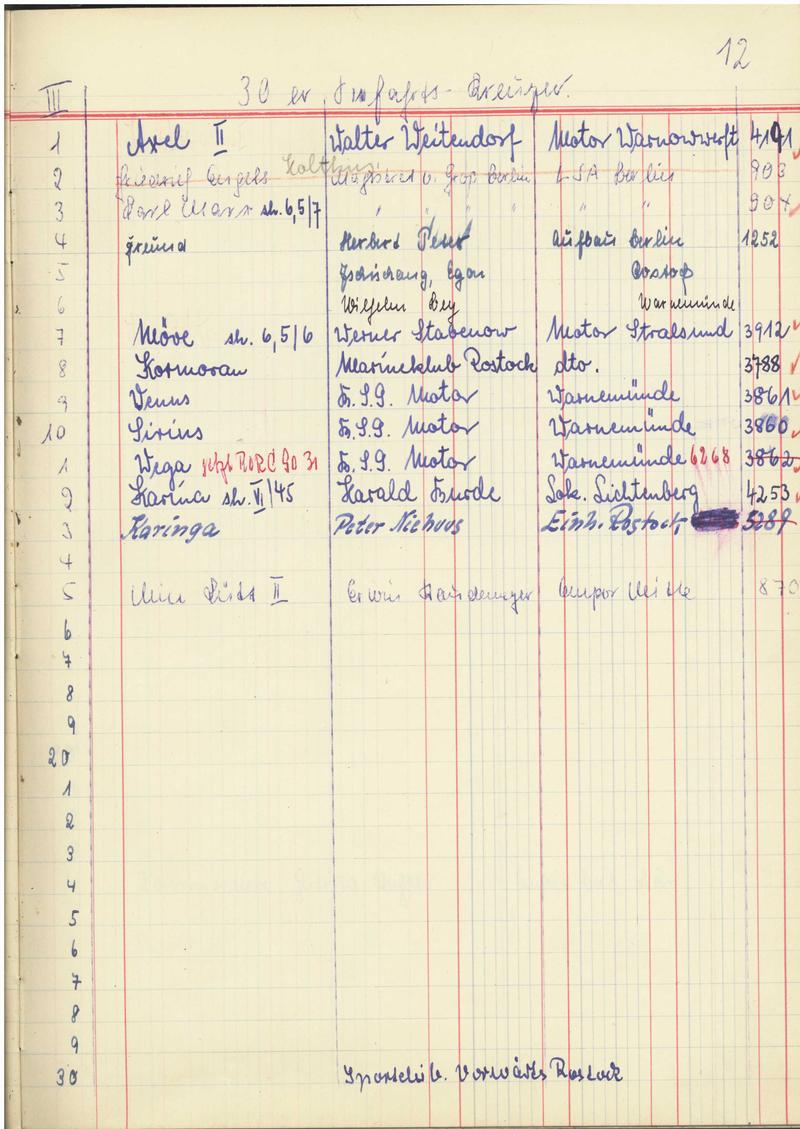 12
III 30 er. Seefahrts-Kreuzer.
1 Axel II Walter Weitendorf Motor Warnowwerft 4191
2 Friedrich Engels Magistrat v. Groß Berlin LSA Berlin 903
3 Karl Marx str. 6,5/7 " " " " " " 904
4 Freund Herbert Peter Aufbau Berlin 1252
5 Zschischang, Egon Rostock
6 Wilhelm Bey Warnemünde
7 Möve str. 6,5/6 Werner Stabenow Motor Stralsund 3912
8 Kormoran Marineklub Rostock dto. 3788
9 Venus B.S.G. Motor Warnemünde 3861
10 Sirius B.S.G. Motor Warnemünde 3860
1 Wega jetzt RORC 90 31 B.S.G. Motor Warnemünde 6268 3862
2 Karina str. VI/45 Harald Burde Lok. Lichtenberg 4253
3 Karinga Peter Niehoos Einh. Rostock 5289
4
5 II Erwin Empor Mitte 870
6
7
8
9
20
1
2
3
4
5
6
7
8
9
30 Sportclub. Vorwärts Rostock